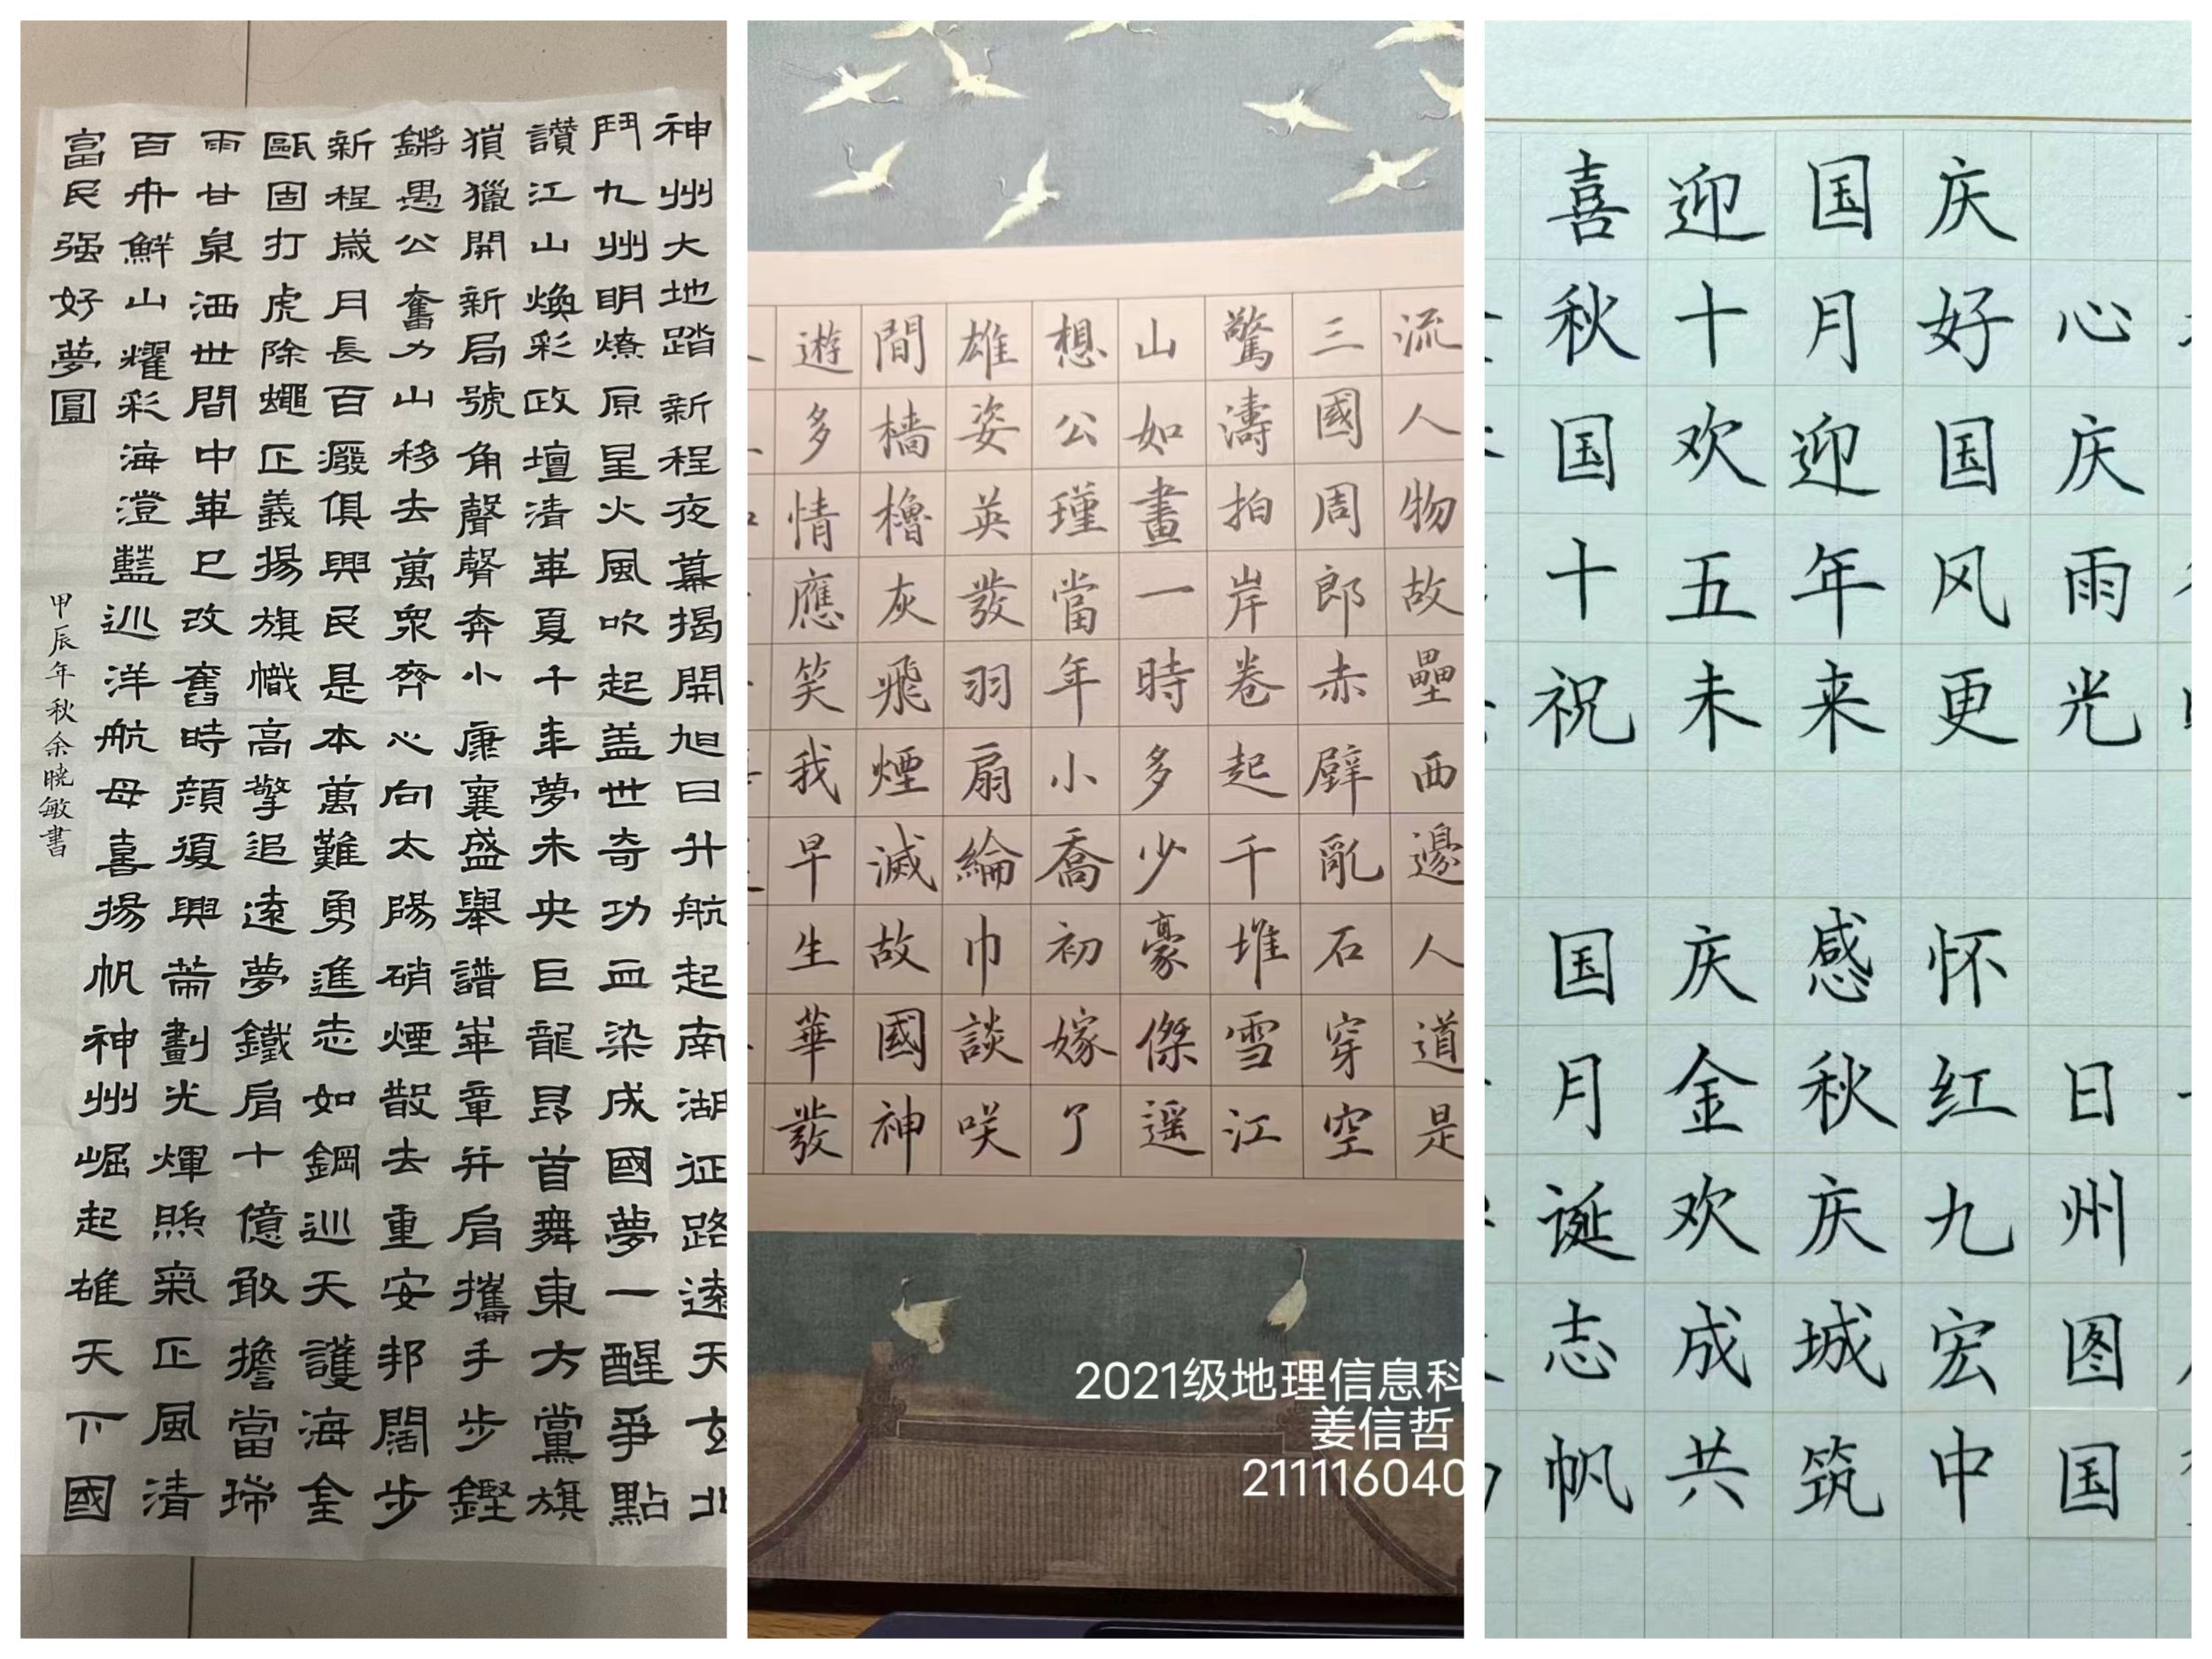 神州大地踏新程夜幕揭開旭日升航起南湖征路遠天北
鬥九州明燎原星火風吹起盖世奇功血染成國夢一醒爭點
讚江山煥彩政壇清華夏千年夢未央巨龍昂首舞東方黨旗
獵開新局號角聲聲奔小康襄盛舉譜華章并肩攜手步鏗
鏘愚公奮力山移去萬衆齊心向太陽硝煙散去重安邦闊步
新程歲月長百廢俱興民是本萬難勇進志如鋼巡天護海金
甌固打虎除蠅正義揚旗幟高擎追遠夢鐵肩十億敢擔當瑞
雨甘泉洒世間中華已改舊時顔復興劃光輝照氣正風清
百舟鮮山耀彩海澄藍巡洋航母喜揚帆神州崛起雄天下國
富民强好夢圓
甲辰年秋余曉敏書
流人物故壘西邊人道是
三國周郎赤壁亂石穿空
驚濤拍岸卷起千堆雪江
山如畫一時多少豪傑遥
想公瑾當年小喬初嫁了
雄姿英發羽扇綸巾談咲
間檣櫓灰飛煙滅故國神
遊多情應笑我早生華發
2021级地理信息科
姜信哲
211116040
喜迎国庆
秋十月好心
国欢迎国庆
十五年风雨
祝未来更光
国庆感怀
月金秋红日
诞欢庆九州
志成城宏图
帆共筑中国